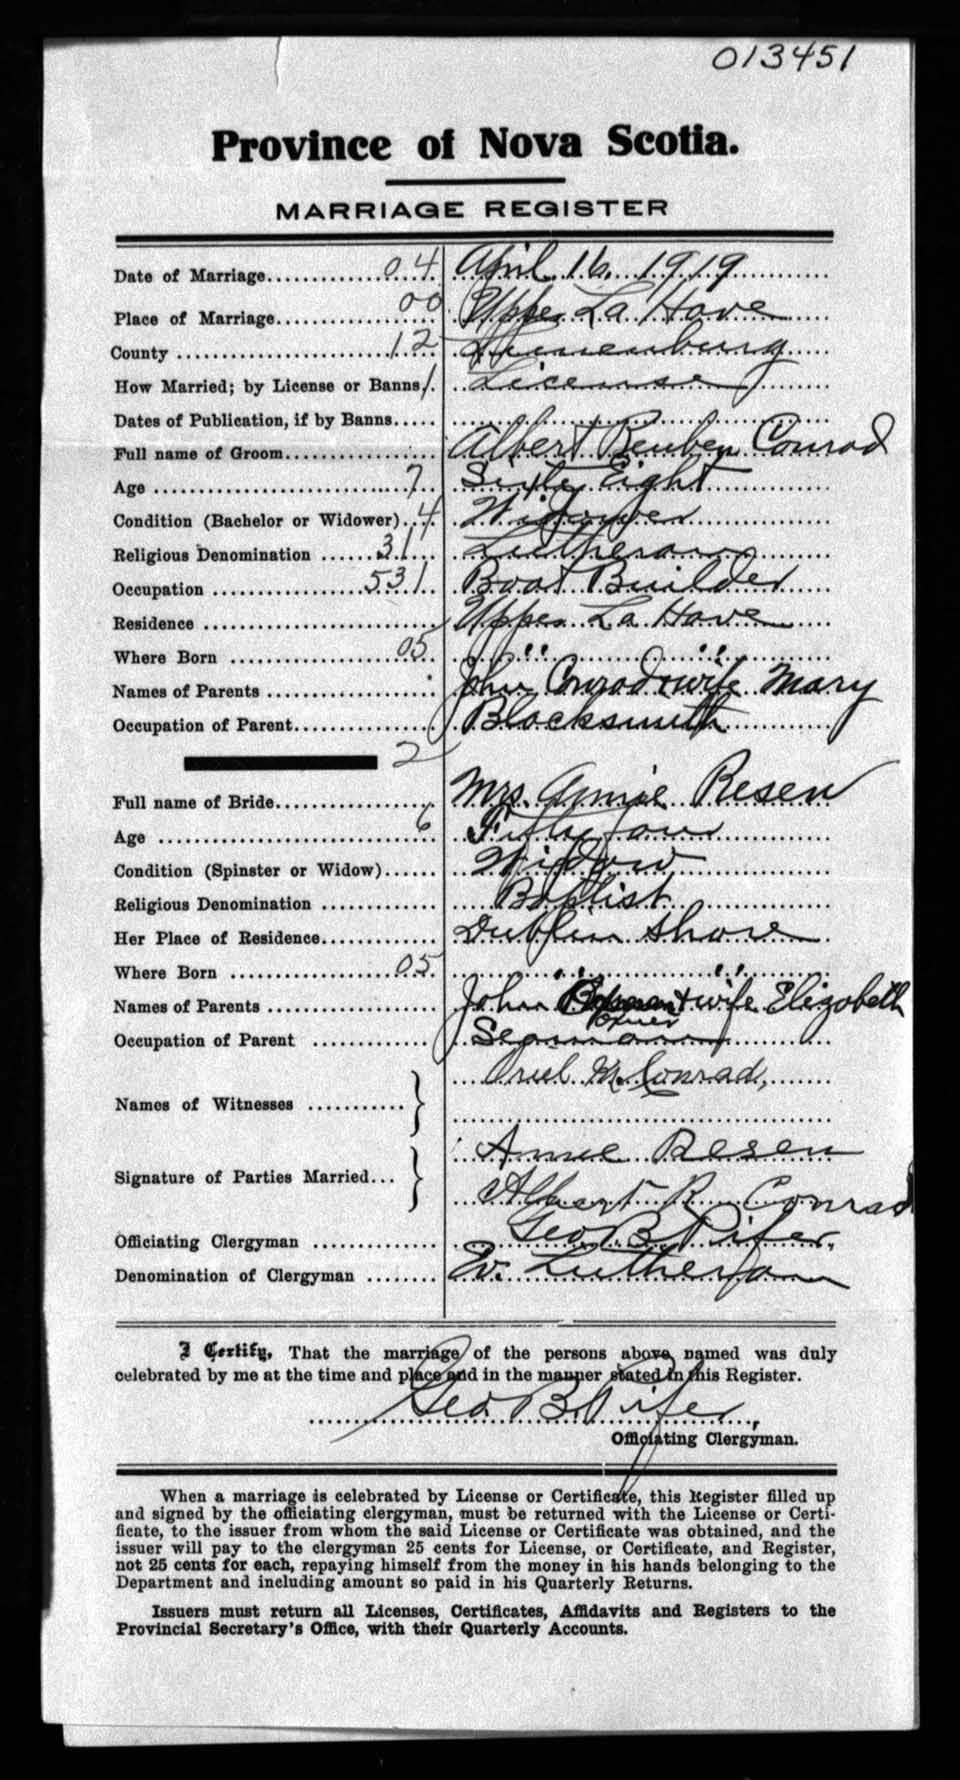 013451
Province of Nova Scotia.
MARRIAGE REGISTER
Date of Marriage 04 April 16. 1919
Place of Marriage 00 Upper La Have
County 12 Lunenburg
How Married; by License or Banns 1 License
Dates of Publication, if by Banns
Full name of Groom Albert Reuben Conrad
Age 7 Sixty Eight
Condition (Bachelor or Widower) 4 Widower
Religious Denomination 31 Lutheran
Occupation 531 Boat Builder
Residence Upper La Have
Where Born 05 " "
Names of Parents John Conrad & wife Mary
Occupation of Parent Blacksmith
2
Full name of Bride Mrs. Annie Resen
Age 6 Fifty four
Condition (Spinster or Widow) Widow
Religious Denomination Baptist
Her Place of Residence Dublin Shore
Where Born 05 " "
Names of Parents John + wife Elizabeth
Occupation of Parent Seaman
Names of Witnesses M. Conrad,
Signature of Parties Married... Annie Resen
Albert R. Conrad
Officiating Clergyman Geo B. Pifer,
Denomination of Clergyman Ev. Lutheran
I Certify, That the marriage of the persons above named was duly
celebrated by me at the time and place and in the manner stated in this Register.
Geo. B. Pifer,
Officiating Clergyman.
When a marriage is celebrated by License or Certificate, this Register filled up
and signed by the officiating clergyman, must be returned with the License or Certi-
ficate, to the issuer from whom the said License or Certificate was obtained, and the
issuer will pay to the clergyman 25 cents for License, or Certificate, and Register,
not 25 cents for each, repaying himself from the money in his hands belonging to the
Department and including amount so paid in his Quarterly Returns.
Issuers must return all Licenses, Certificates, Affidavits and Registers to the
Provincial Secretary's Office, with their Quarterly Accounts.